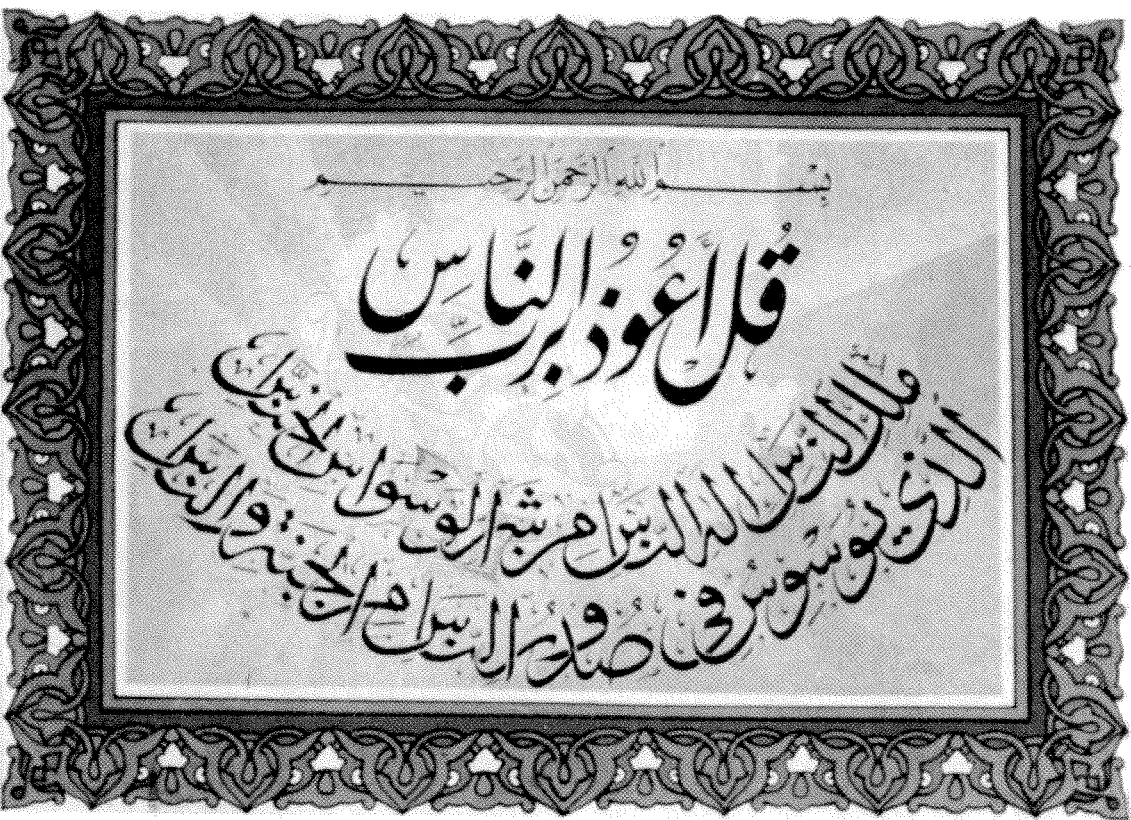 بِسْمِ اللهِ الرَّحْمٰنِ الرَّحِيمِ
قُلْ اَعُوذُ بِرَبِّ النَّاسِ
مَلِكِ النَّاسِ اِلٰهِ النَّاسِ مِنْ شَرِّ الْوَسْوَاسِ الْخَنَّاسِ
اَلَّذِي يُوَسْوِسُ فِي صُدُورِ النَّاسِ مِنَ الْجِنَّةِ وَالنَّاسِ